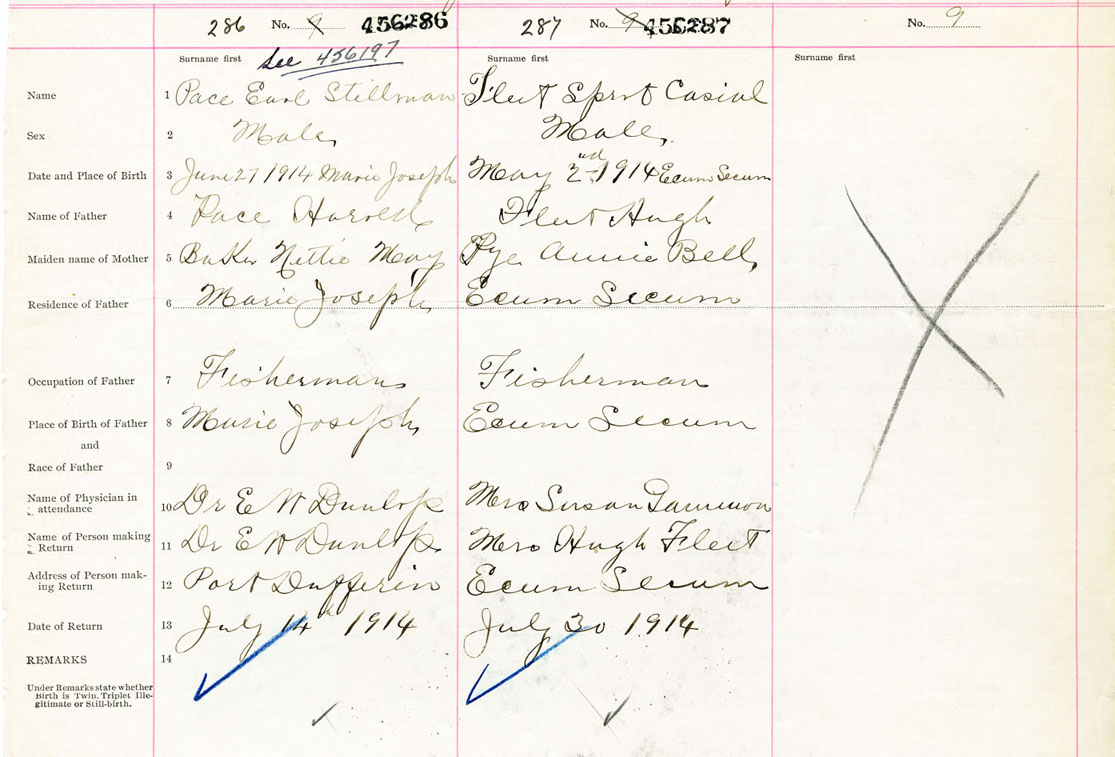 286 No. 9 456286 287 No. 9 456287 No. 9
See 456197
Surname first Surname first Surname first
Name 1 Pace Earl Stillman Fleet Sprot Casial
Sex 2 Male Male
Date and Place of Birth 3 June 27 1914 Marie Joseph May 2nd 1914 Ecum Secum
Name of Father 4 Pace Harold Fleet Hugh
Maiden name of Mother 5 Baker Nettie May Pye Annie Bell
Residence of Father 6 Marie Joseph Ecum Secum
Occupation of Father 7 Fisherman Fisherman
Place of Birth of Father 8 Marie Joseph Ecum Secum
and
Race of Father 9
Name of Physician in
attendance 10 Dr E W Dunlop Mrs Susan
Name of Person making
Return 11 Dr E W Dunlop Mrs Hugh Fleet
Address of Person mak-
ing Return 12 Port Dufferin Ecum Secum
Date of Return 13 July 14th 1914 July 30 1914
REMARKS 14
Under Remarks state whether
Birth is Twin, Triplet Ille-
gitimate or Still-birth.